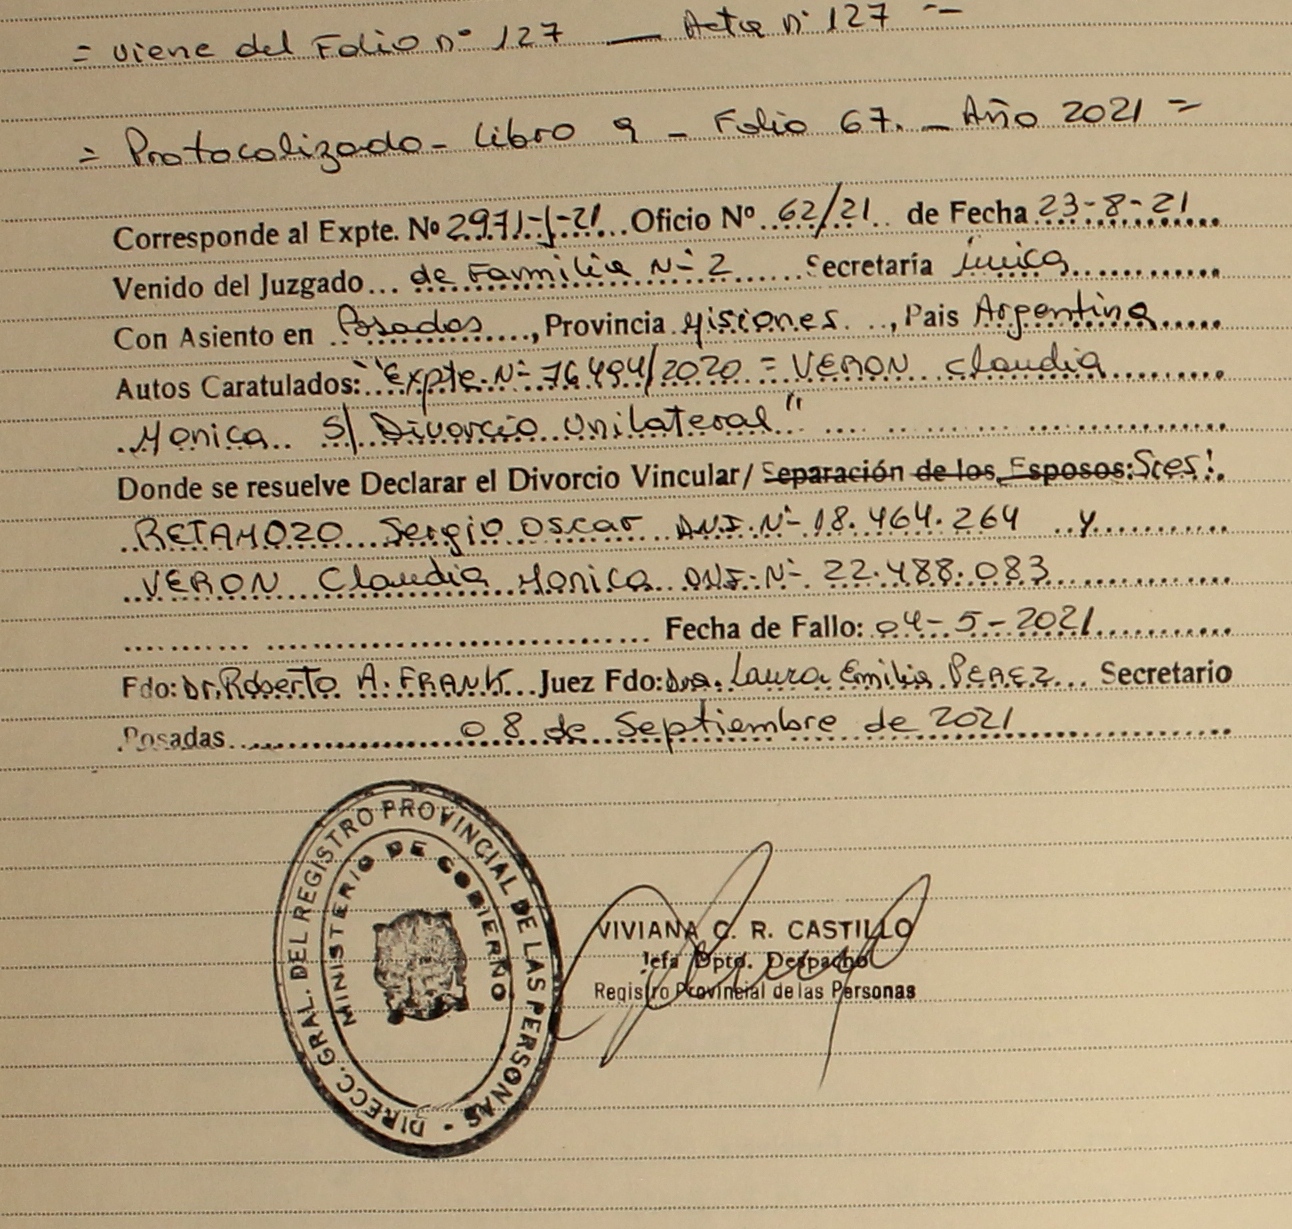 = viene del Folio nº 127 — Acta nº 127 =
= Protocolizado - Libro 9 - Folio 67. - Año 2021 =
Corresponde al Expte. Nº 2971-J-21 Oficio Nº 62/21 de Fecha 23-8-21
Venido del Juzgado de Familia Nº 2 Secretaría única
Con Asiento en Posadas, Provincia Misiones, Pais Argentina
Autos Caratulados: "Expte. Nº 76494/2020 = VERON Claudia
Monica S/ Divorcio Unilateral"
Donde se resuelve Declarar el Divorcio Vincular/ Separación de los Esposos: Sres:
RETAMOZO Sergio Oscar D.N.I. Nº 18.464.264 y
VERON Claudia Monica DNI. Nº 22.488.083
Fecha de Fallo: 04-5-2021
Fdo: Dr. Roberto A. FRANK Juez Fdo: Dra. Laura Emilia PEREZ Secretario
Posadas 08 de Septiembre de 2021
DIRECC. GRAL. DEL REGISTRO PROVINCIAL DE LAS PERSONAS -
MINISTERIO DE GOBIERNO
VIVIANA C. R. CASTILLO
Jefa Dpto. Despacho
Registro Provincial de las Personas